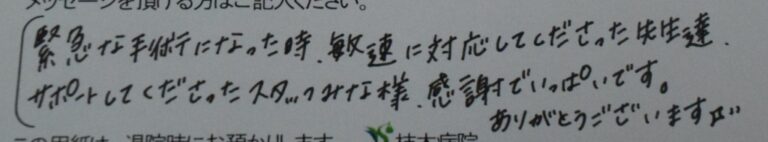 メッセージを頂ける方はご記入ください。
緊急な手術になった時、敏速に対応してくださった先生達、
サポートしてくださったスタッフみな様、感謝でいっぱいです。
ありがとうございます
この用紙は、退院時にお預かりします
技本病院